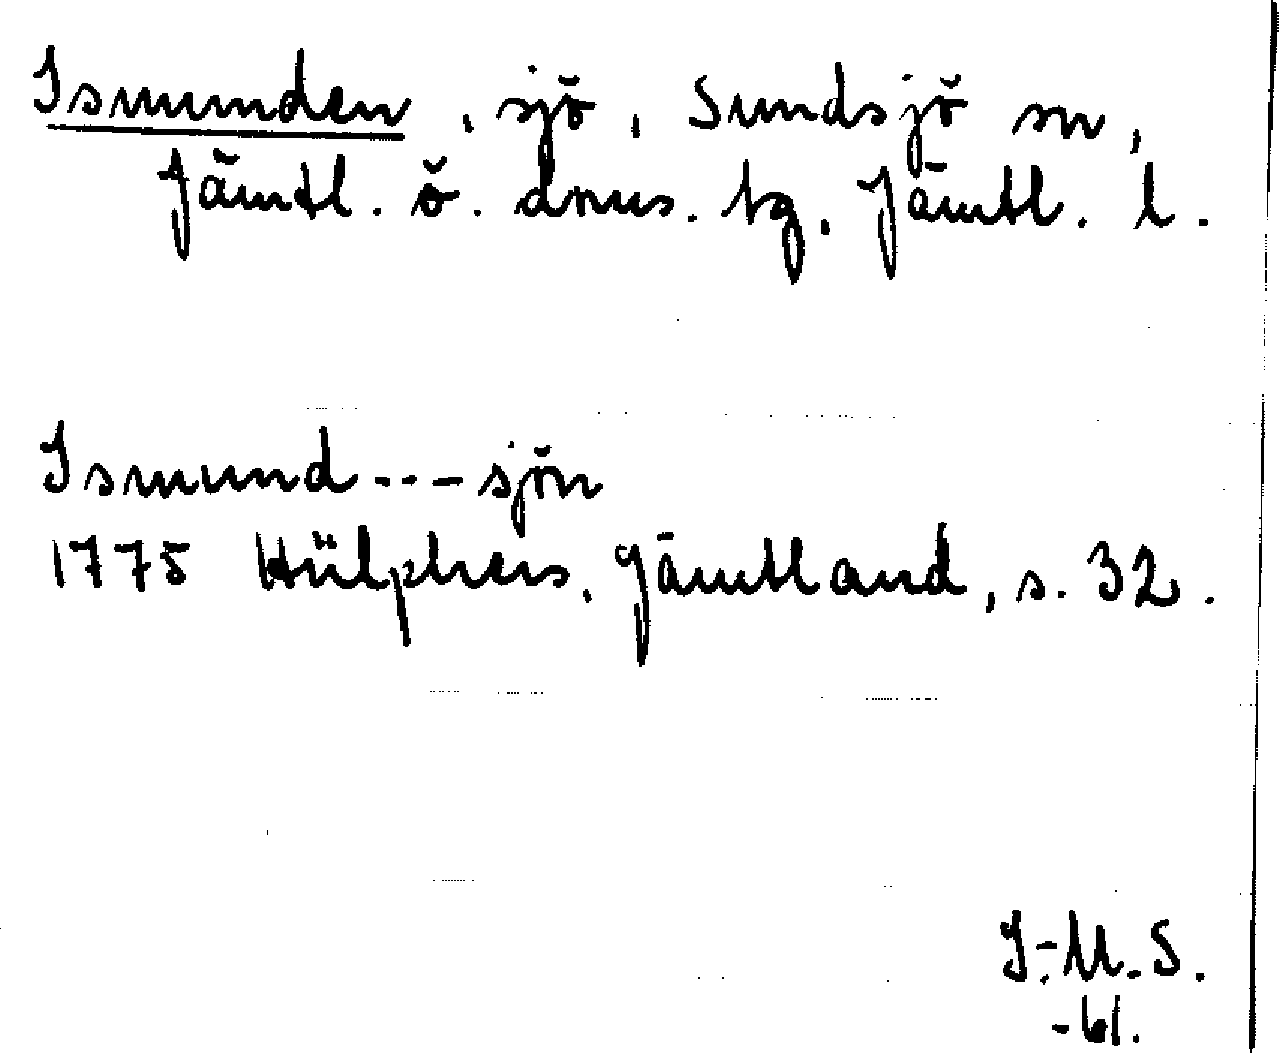 Ismunden, sjö, Sundsjö sn,
Jämtl. ö. dms. tg. Jämtl. l.
Ismund---sjön
1775 Hülphers, Jämtland, s. 32.
I-M.S.
-61.